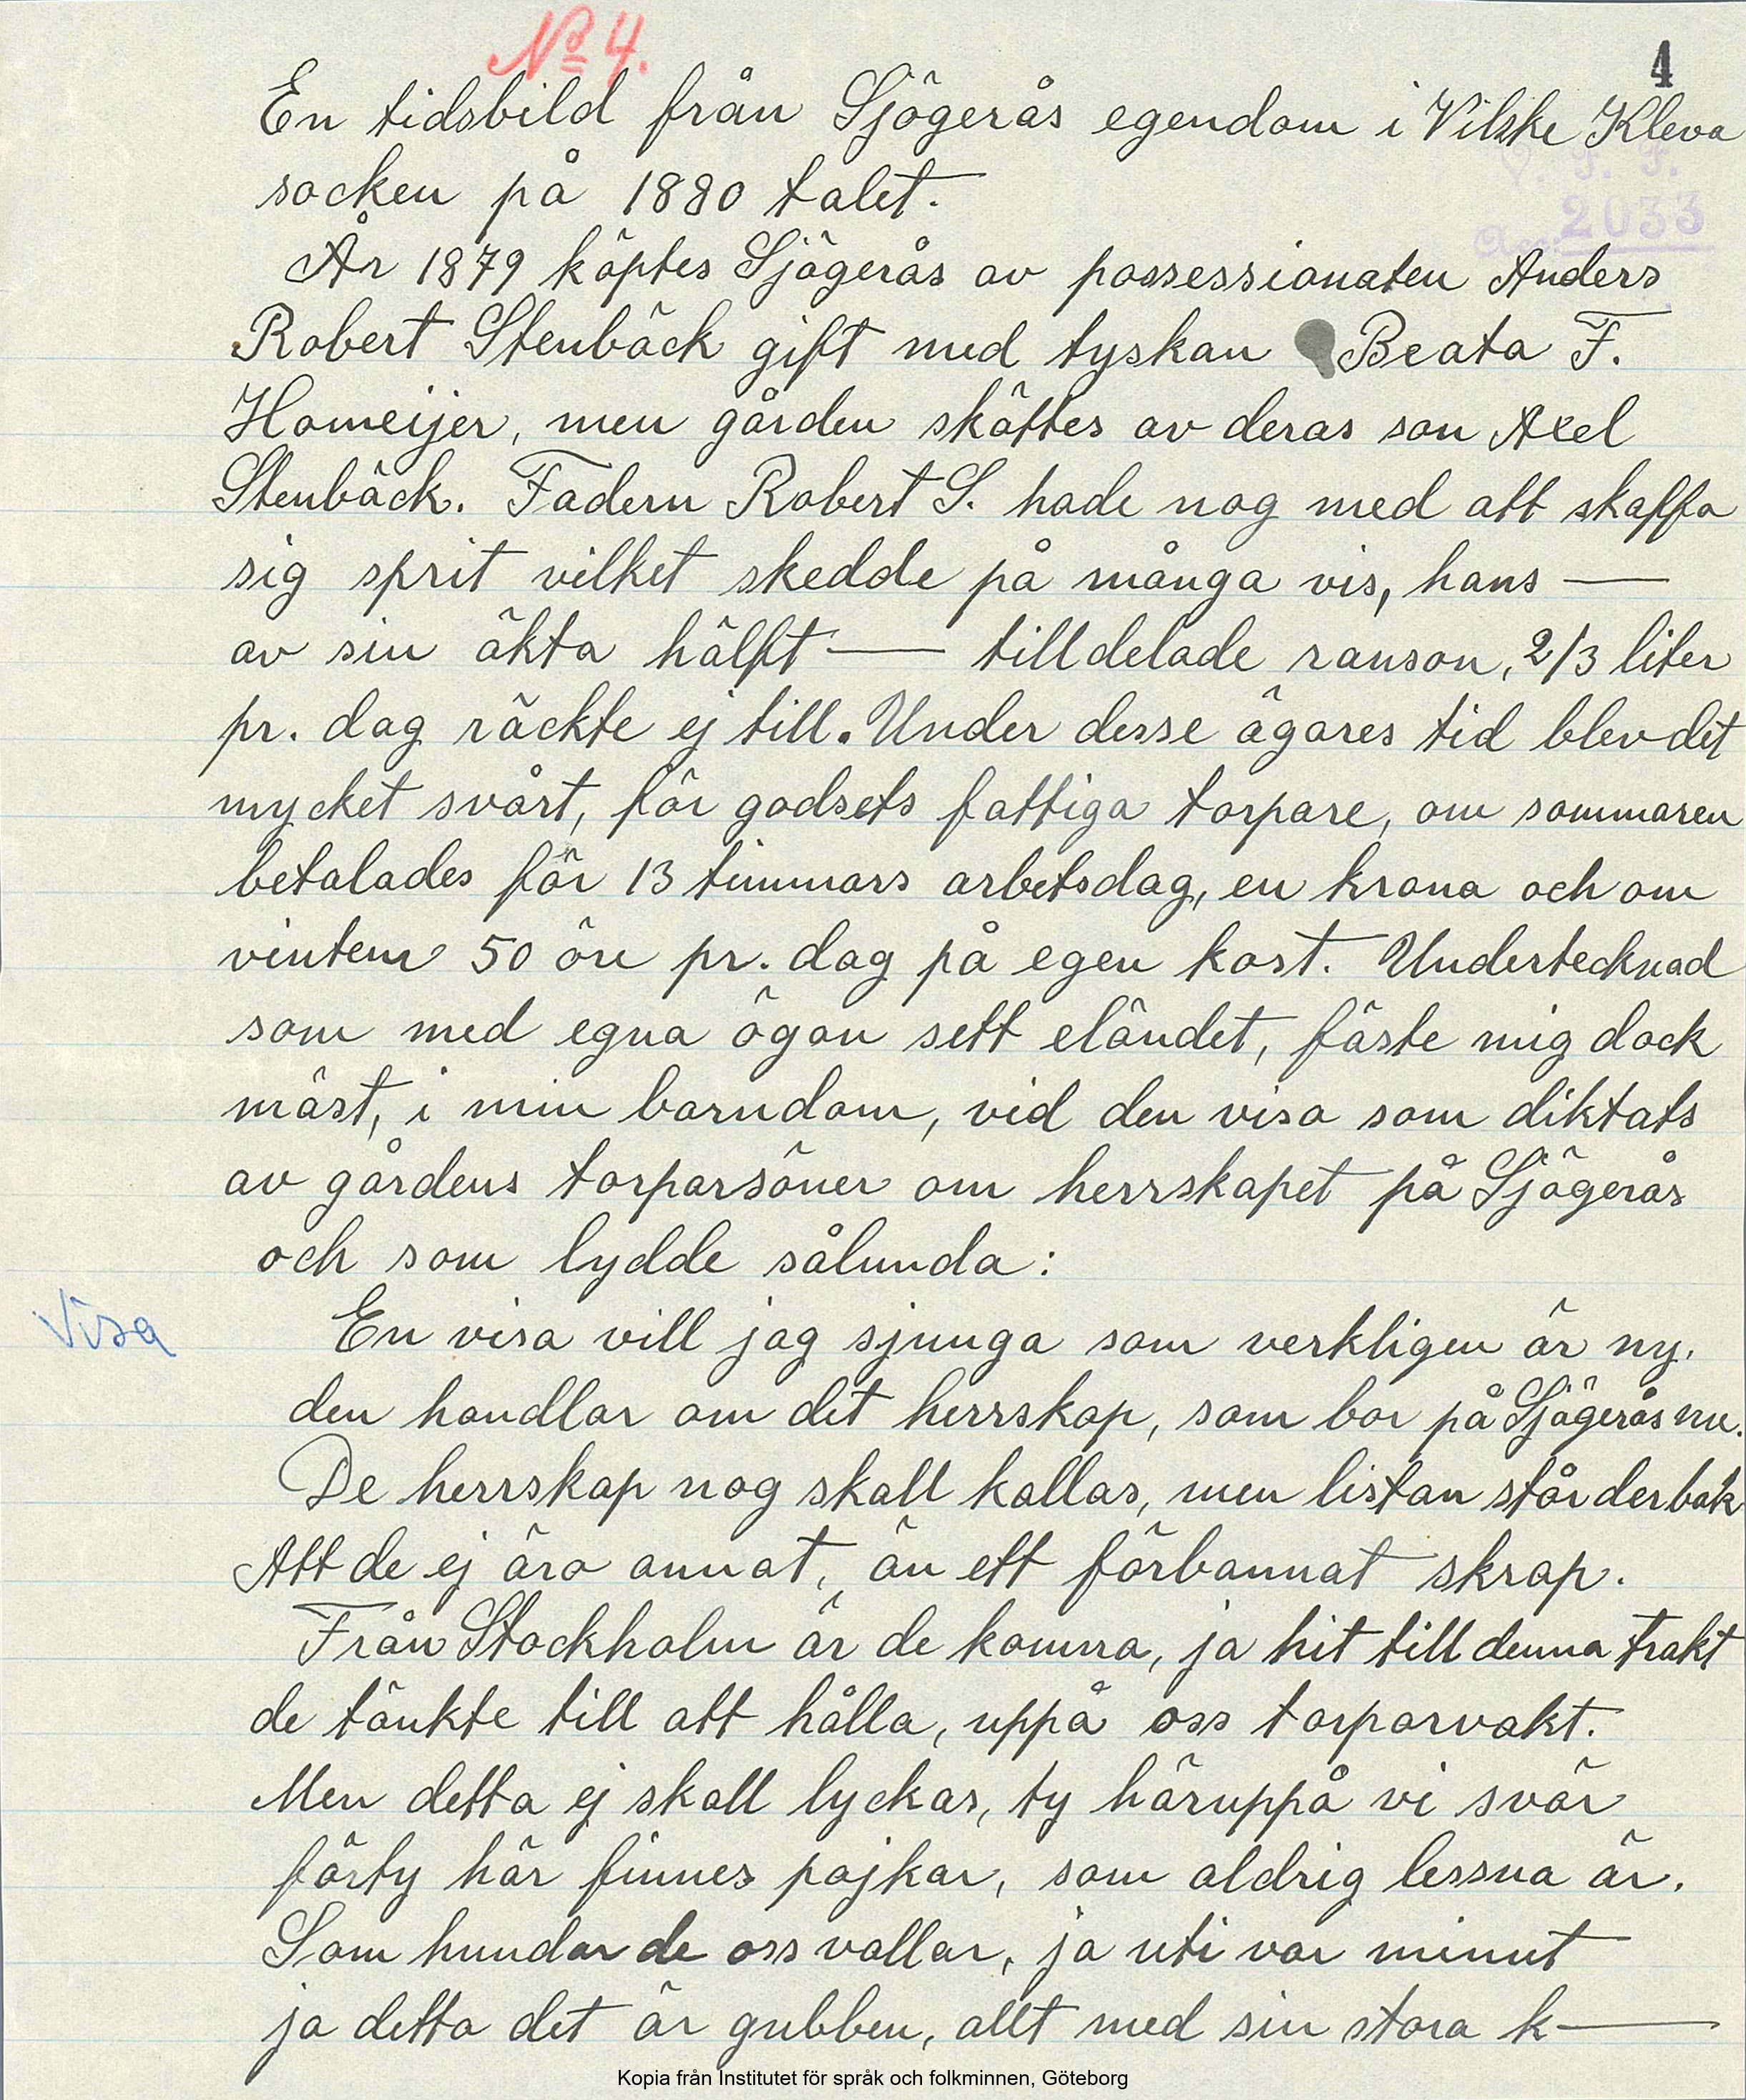 No 4.
4
En tidsbild från Sjögerås egendom i Vilske Kleva
V. F. F.
socken på 1880 talet.
Acc: 2033
År 1879 köptes Sjögerås av possessionaten Anders
Robert Stenbäck gift med tyskan Beata F.
Homeijer, men gården sköttes av deras son Axel
Stenbäck. Fadern Robert S. hade nog med att skaffa
sig sprit vilket skedde på många vis, hans —
av sin äkta hälft — tilldelade ranson, 2/3 liter
pr. dag räckte ej till. Under desse ägares tid blev det
mycket svårt, för godsets fattiga torpare, om sommaren
betalades för 13 timmars arbetsdag, en krona och om
vintern 50 öre pr. dag på egen kost. Undertecknad
som med egna ögon sett eländet, fäste mig dock
mäst, i min barndom, vid den visa som diktats
av gårdens torparsöner om herrskapet på Sjögerås
och som lydde sålunda:
Visa
En visa vill jag sjunga som verkligen är ny,
den handlar om det herrskap, som bor på Sjögerås nu.
De herrskap nog skall kallas, men listan står derbak
Att de ej äro annat, än ett förbannat skrap.
Från Stockholm är de komna, ja hit till denna trakt
de tänkte till att hålla, uppå oss torparvakt.
Men detta ej skall lyckas, ty häruppå vi svär
förty här finnes pojkar, som aldrig lessna är.
Som hundar de oss vallar, ja uti var minut
ja detta det är gubben, allt med sin stora k—
Kopia från Institutet för språk och folkminnen, Göteborg